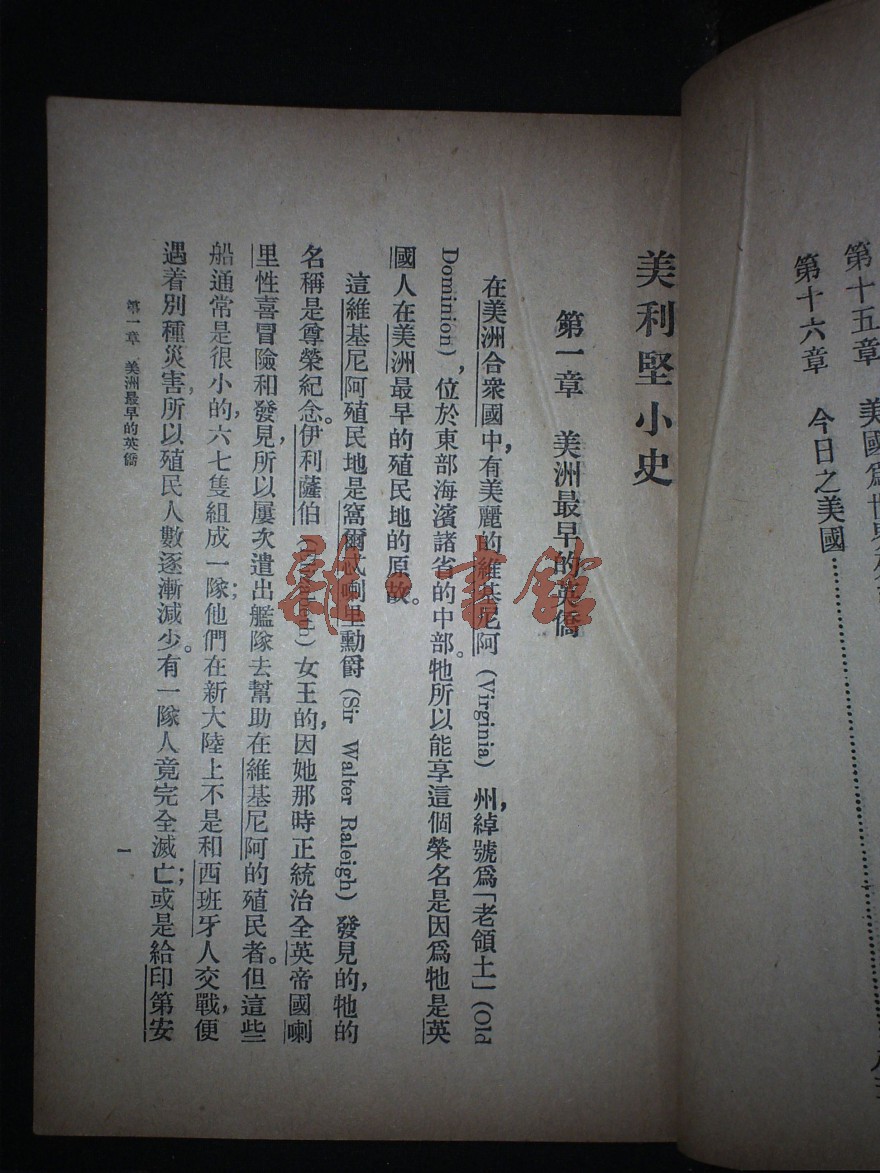 第十五章　美國爲世界
第十六章　今日之美國…………
美利堅小史
第一章　美洲最早的英僑
在美洲合衆國中，有美麗的維基尼阿 (Virginia) 州，綽號爲「老領土」(Old
Dominion)，位於東部海濱諸省的中部。牠所以能享這個榮名是因爲牠是英
國人在美洲最早的殖民地的原故。
這維基尼阿殖民地是窩爾忒喇里勳爵 (Sir Walter Raleigh) 發見的，牠的
名稱是尊榮紀念。伊利薩伯 女王的，因她那時正統治全英帝國喇
里性喜冒險和發見，所以屢次遣出艦隊去幫助在維基尼阿的殖民者。但這些
船通常是很小的，六七隻組成一隊；他們在新大陸上不是和西班牙人交戰，便
遇着別種災害，所以殖民人數逐漸減少。有一隊人竟完全滅亡；或是給印第安
第一章　美洲最早的英僑
一
雜·書館